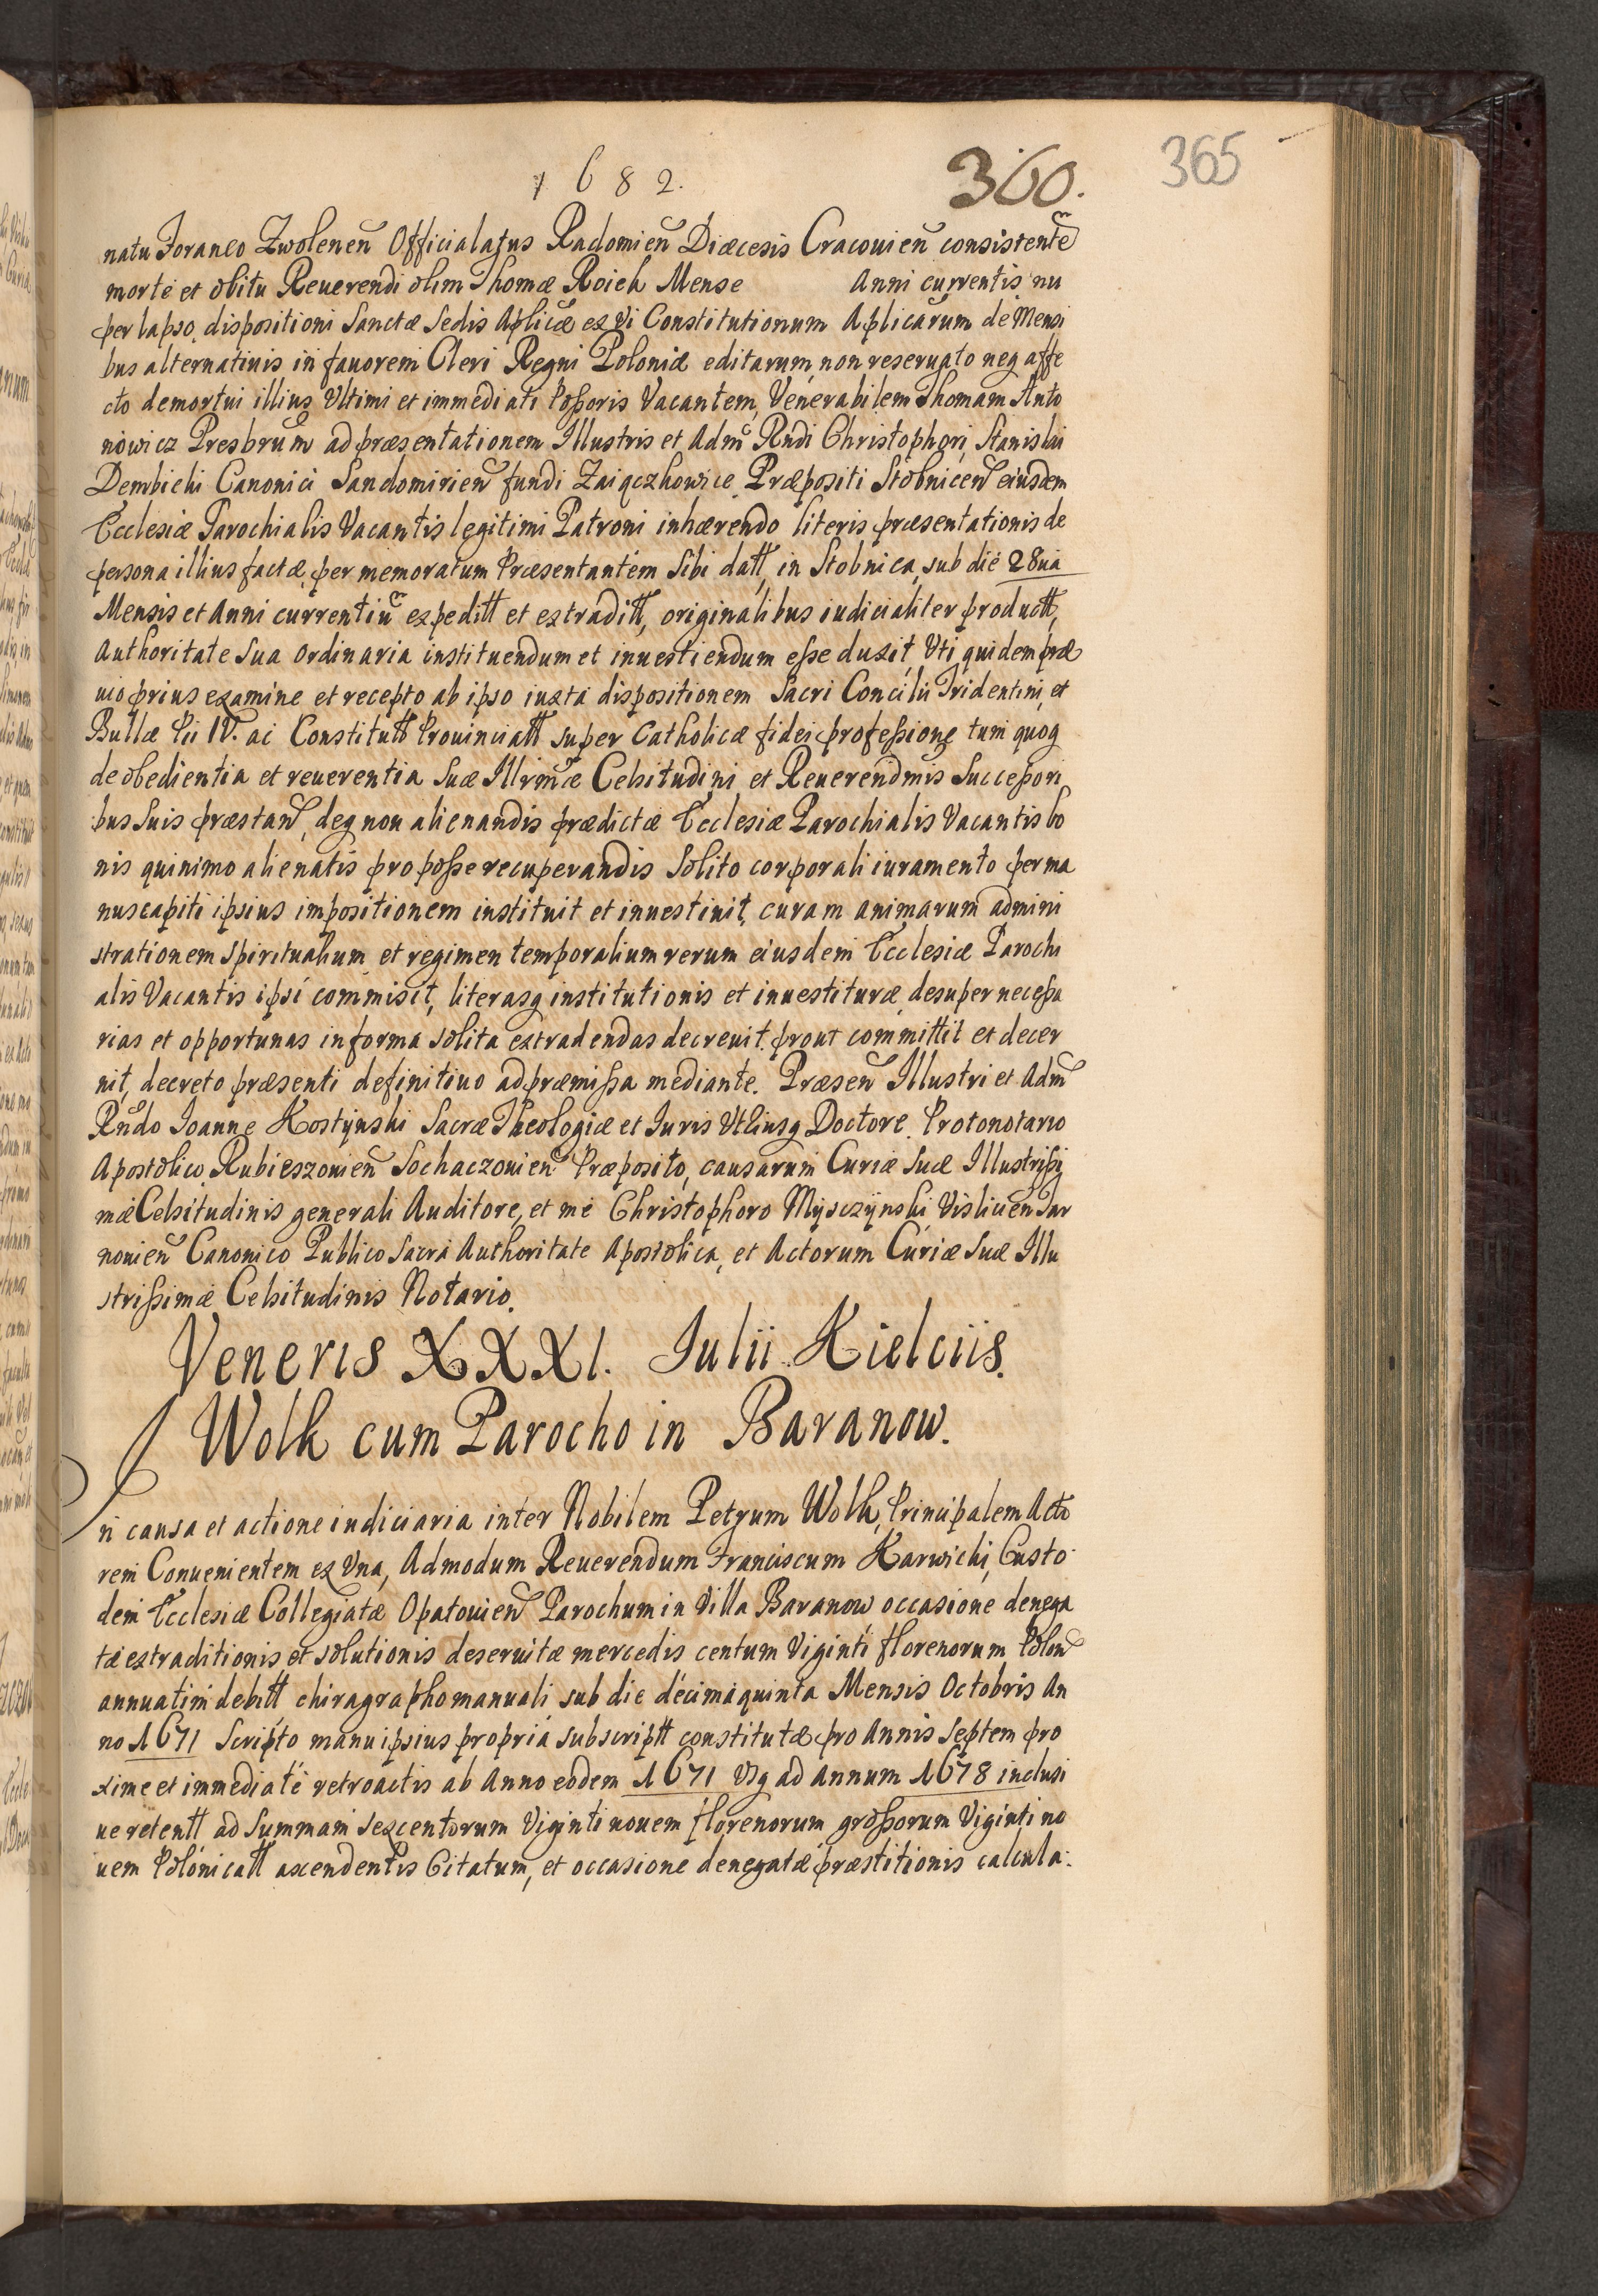 1682.
360.
365
natu Foraneo Zwoleneñ Officialatus Radomieñ Diæcesis Cracouieñ consistente
morte et obitu Reuerendi olim Thomæ Roiek Mense Anni currentis nu
per lapso, dispositioni Sanctæ Sedis Aplicæ ex vi Constitutionum Aplicarum de Mensi
bus alternatiuis in fauorem Cleri Regni Poloniæ editarum, non reseruato neq affe
cto demortui illius Vltimi et immediati Poßoris Vacantem, Venerabilem Thomam Anto
nowicz Presbrum ad præsentationem Illustris et Adm Rndi Christophori, Stanislai
Dembicki Canonici Sandomirieñ fundi Zaiączkowice, Præpositi Stobniceñ eiusdem
Ecclesiæ Parochialis Vacantis legitimi Patroni inhærendo literis præsentationis de
persona illius factæ, per memoratum Præsentantem Sibi datt, in Stobnica, sub die 28ua
Mensis et Anni currentiu expeditt et extraditt, originalibus iudicialiter productt,
Authoritate Sua ordinaria instituendum et inuestiendum eße duxit, Vti quidem præ
uio prius examine et recepto ab ipso iuxta dispositionem Sacri Concilii Tridentini, et
Bullæ Pii IV. ac Constitutt Prouinciatt super Catholicæ fidei profeßione tum quoq
de obedientia et reuerentia Suæ Illrmæ Celsitudini et Reuerendmis Succeßori
bus Suis præstañ, deq non alienandis prædictæ Ecclesiæ Parochialis Vacantis bo
nis quinimo alienatis pro poße recuperandis Solito corporali iuramento per ma
nus capiti ipsius impositionem instituit et inuestiuit, curam animarum admini
strationem Spiritualium, et regimen temporalium rerum eiusdem Ecclesiæ Parochi
alis Vacantis ipsi commisit, literasq institutionis et inuestituræ desuper neceßa
rias et opportunas in forma solita extradendas decreuit. prout committit et decer
nit, decreto præsenti definitiuo ad præmißa mediante. Præseñ Illustri et Adm
Rndo Ioanne Kostynski Sacræ Theologiæ et Iuris Vtliusq Doctore, Protonotario
Apostolico, Rubieszouieñ Sochaczouieñ Præposito, causarum Curiæ Suæ Illustrißi
mæ Celsitudinis generali Auditore, et me Christophoro Mysczÿnski Visliceñ Tar
nouieñ Canonico Publico Sacra Authoritate Apostolica, et Actorum Curiæ Suæ Illu
strißimæ Celsitudinis Notario.
Veneris XXXI. Iulii Kielciis.
Wolk cum Parocho in Baranow.
In causa et actione iudiciaria inter Nobilem Petrum Wolk, Principalem Acto
rem Conuenientem ex Vna, Admodum Reuerendum Franciscum Karwicki, Custo
dem Ecclesiæ Collegiatæ Opatouieñ Parochum in Villa Baranow occasione denega
tæ extraditionis et solutionis deseruitæ mercedis centum Viginti florenorum Poloñ
annuatim debitt chiragrapho manuali sub die decima quinta Mensis Octobris An
no 1671 Scripto manu ipsius propria subscriptt constitutæ pro Annis Septem pro
xime et immediate retroactis ab Anno eodem 1671 Vsq ad Annum 1678 inclusi
ue retentt ad Summam sexcentorum Viginti nouem florenorum großorum Viginti no
uem Polonicatt ascendentis Citatum, et occasione denegatæ præstitionis calcula.